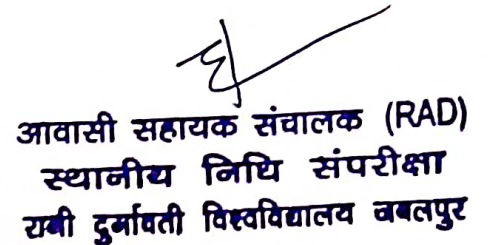 आवासी सहायक संचालक (RAD)
स्थानीय निधि संपरीक्षा
रानी दुर्गावती विश्वविद्यालय जबलपुर